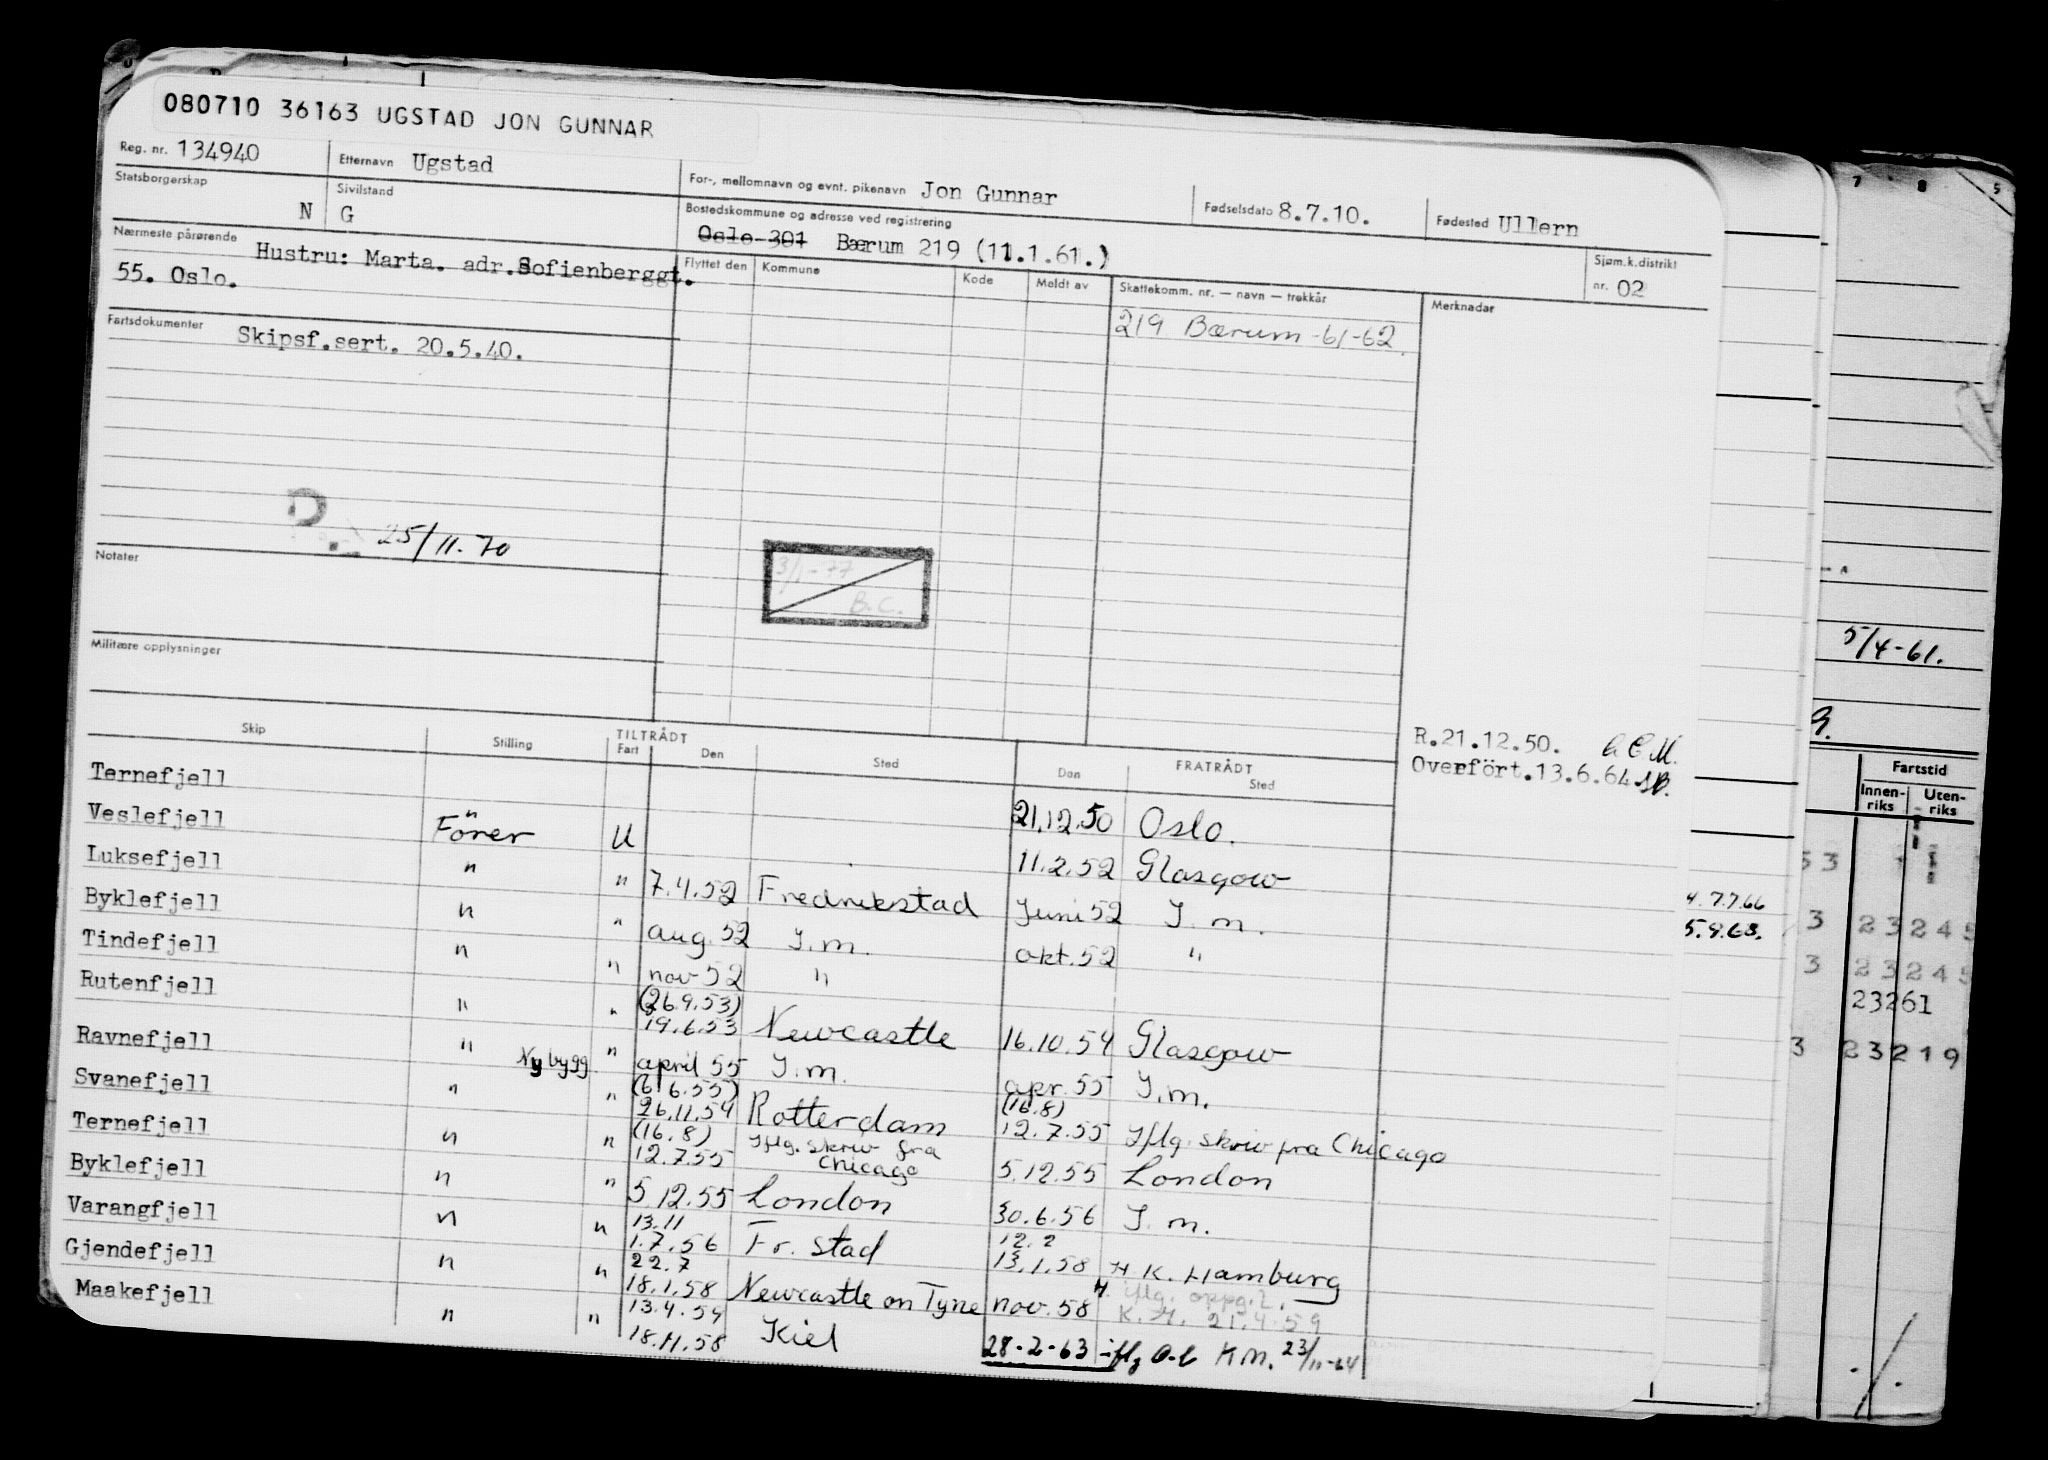 080710 36163 UGSTAD JON GUNNAR
Reg. nr. 134940 Etternavn Ugstad For-, mellomnavn og evnt. pikenavn Jon Gunnar Fødselsdato 8.7.10. Fødested Ullern
Statsborgerskap N Sivilstand G Bostedskommune og adresse ved registrering Oslo 301 Bærum 219 (11.1.61.) Sjøm.k.distrikt nr. 02
Nærmeste pårørende Hustru: Marta. adr. Sofienberggt.
55. Oslo.
Flyttet den Kommune Kode Meldt av Skattekomm. nr. — navn — trekkår Merknader
219 Bærum -61-62.
Fartsdokumenter Skipsf.sert. 20.5.40.
25/11.70
3/1-77
B.C.
Notater
Militære opplysninger
R.21.12.50.
Overført.13.6.64
Skip Stilling TILTRÅDT Fart Den Sted FRATRÅDT Den Sted
Ternefjell 21.12.50 Oslo.
Veslefjell Förer U 11.2.52 Glasgow
Luksefjell " " 7.4.52 Fredrikstad Juni 52 I.m.
Byklefjell " " aug. 52 I.m. okt. 52 "
Tindefjell " " nov 52 "
Rutenfjell " " (26.9.53) 19.6.53 Newcastle 16.10.54 Glasgow
Ravnefjell " Nybygg. " april 55 I.m. apr. 55 I.m.
Svanefjell " " (6/6.55) 26.11.54 Rotterdam (16.8) 12.7.55 Iflg. skriv fra Chicago
Ternefjell " " (16.8) 12.7.55 Iflg. skriv fra Chicago 5.12.55 London
Byklefjell " " 5.12.55 London 30.6.56 I.m.
Varangfjell " " 13.11 1.7.56 Fr. stad 12.2 13.1.58 H K. Hamburg
Gjendefjell " " 22.7 18.1.58 Newcastle on Tyne nov. 58 H. iflg. oppg. K.H. 21.4.59
Maakefjell " " 13.4.59 18.11.58 Kiel 28-2-63 iflg O-l KM. 23/11-64
7 8 5
5/4-61.
9.
Fartstid
Innen-riks Uten-riks
53
4.7.7.66
5.9.63.
3 23245
3 23245
23261
3 23219